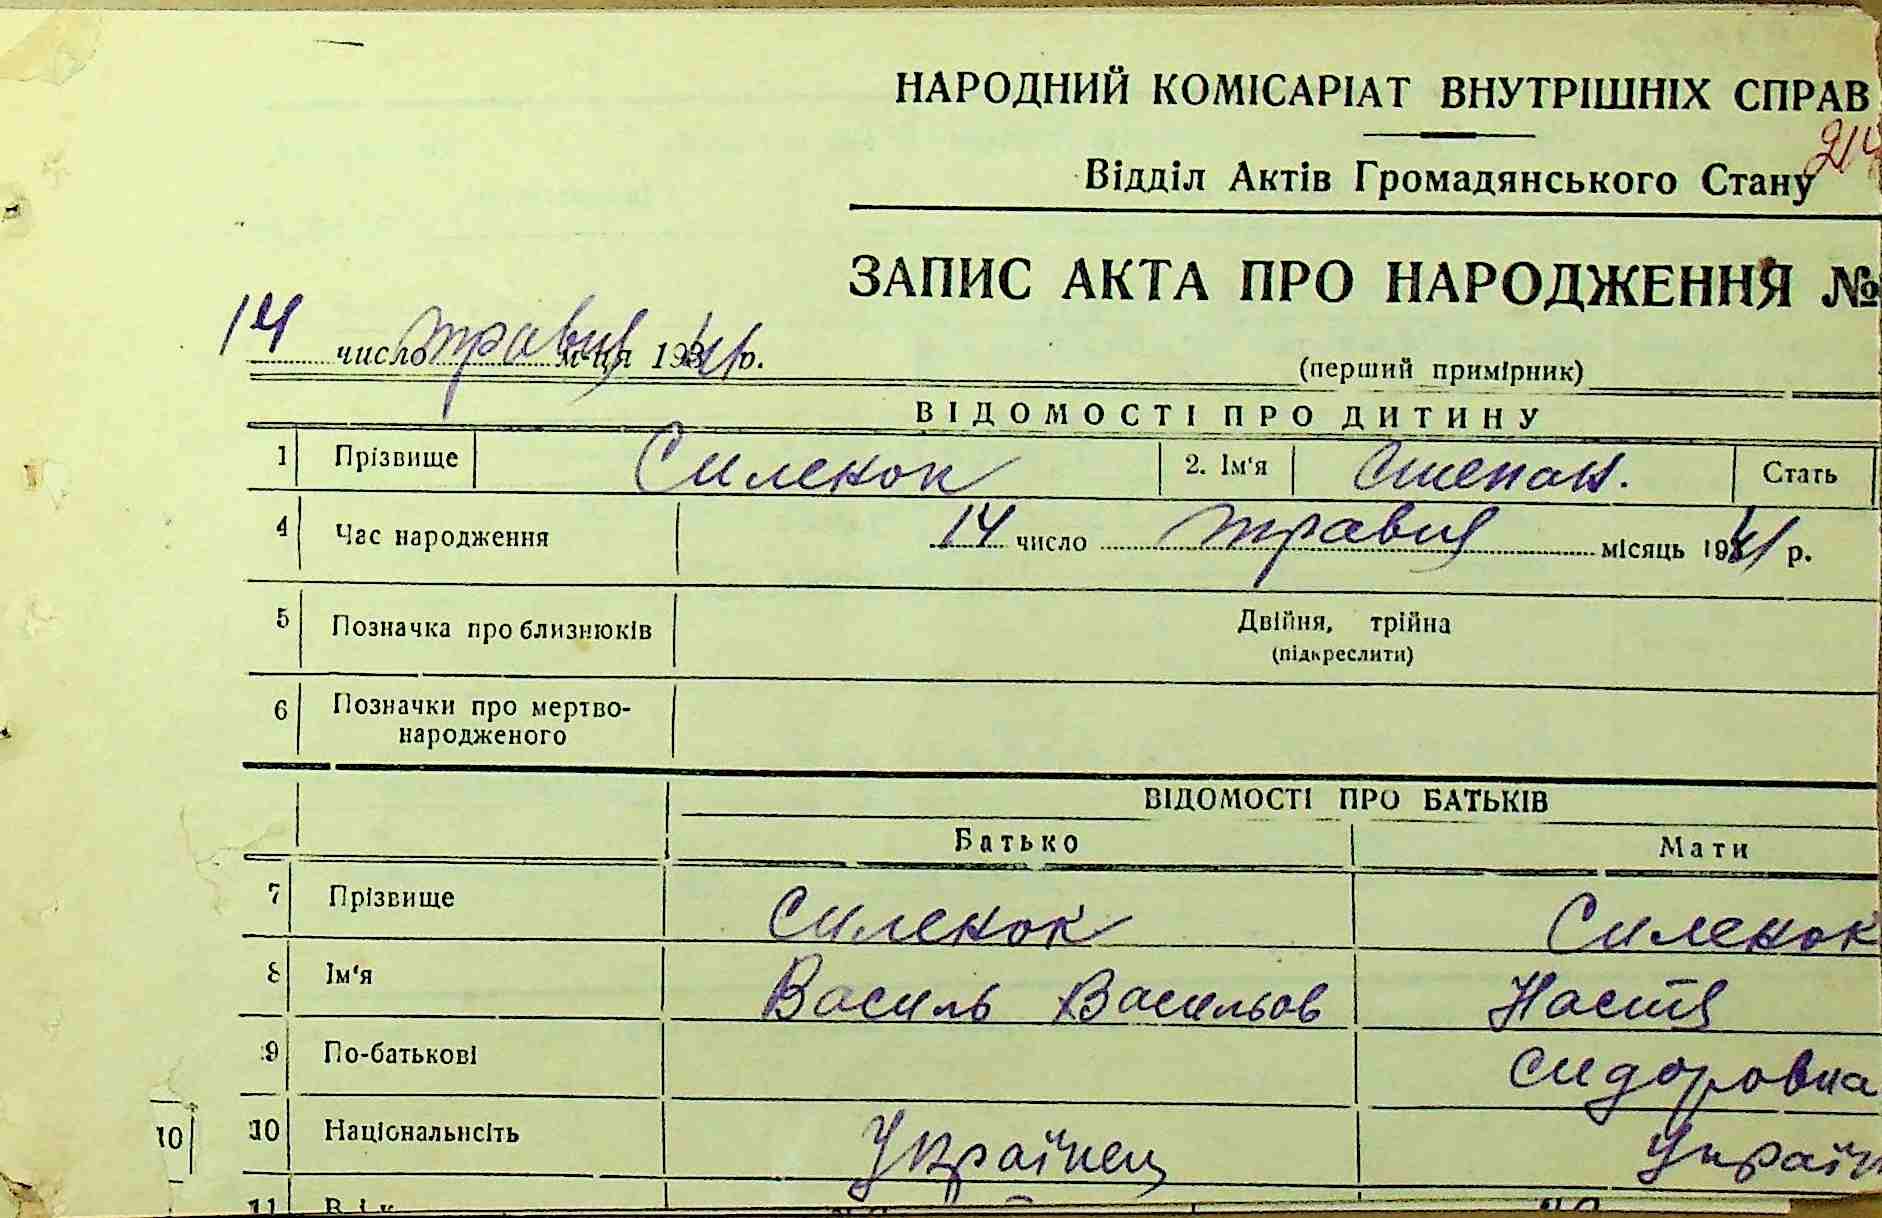 НАРОДНИЙ КОМІСАРІАТ ВНУТРІШНІХ СПРАВ
214
Відділ Актів Громадянського Стану
ЗАПИС АКТА ПРО НАРОДЖЕННЯ №
14 число травня м-ця 1941 р.
(перший примірник)
ВІДОМОСТІ ПРО ДИТИНУ
1 Прізвище Силенок 2. Ім'я Степан. Стать
4 Час народження 14 число травня місяць 1941 р.
5 Позначка про близнюків Двійня, трійна
(підкреслити)
6 Позначки про мертво-
народженого
ВІДОМОСТІ ПРО БАТЬКІВ
Батько Мати
7 Прізвище Силенок Силенок
8 Ім'я Василь Васильов Настя
9 По-батькові Сидоровна
10 10 Національнсіть Українец Україн
11 Вік